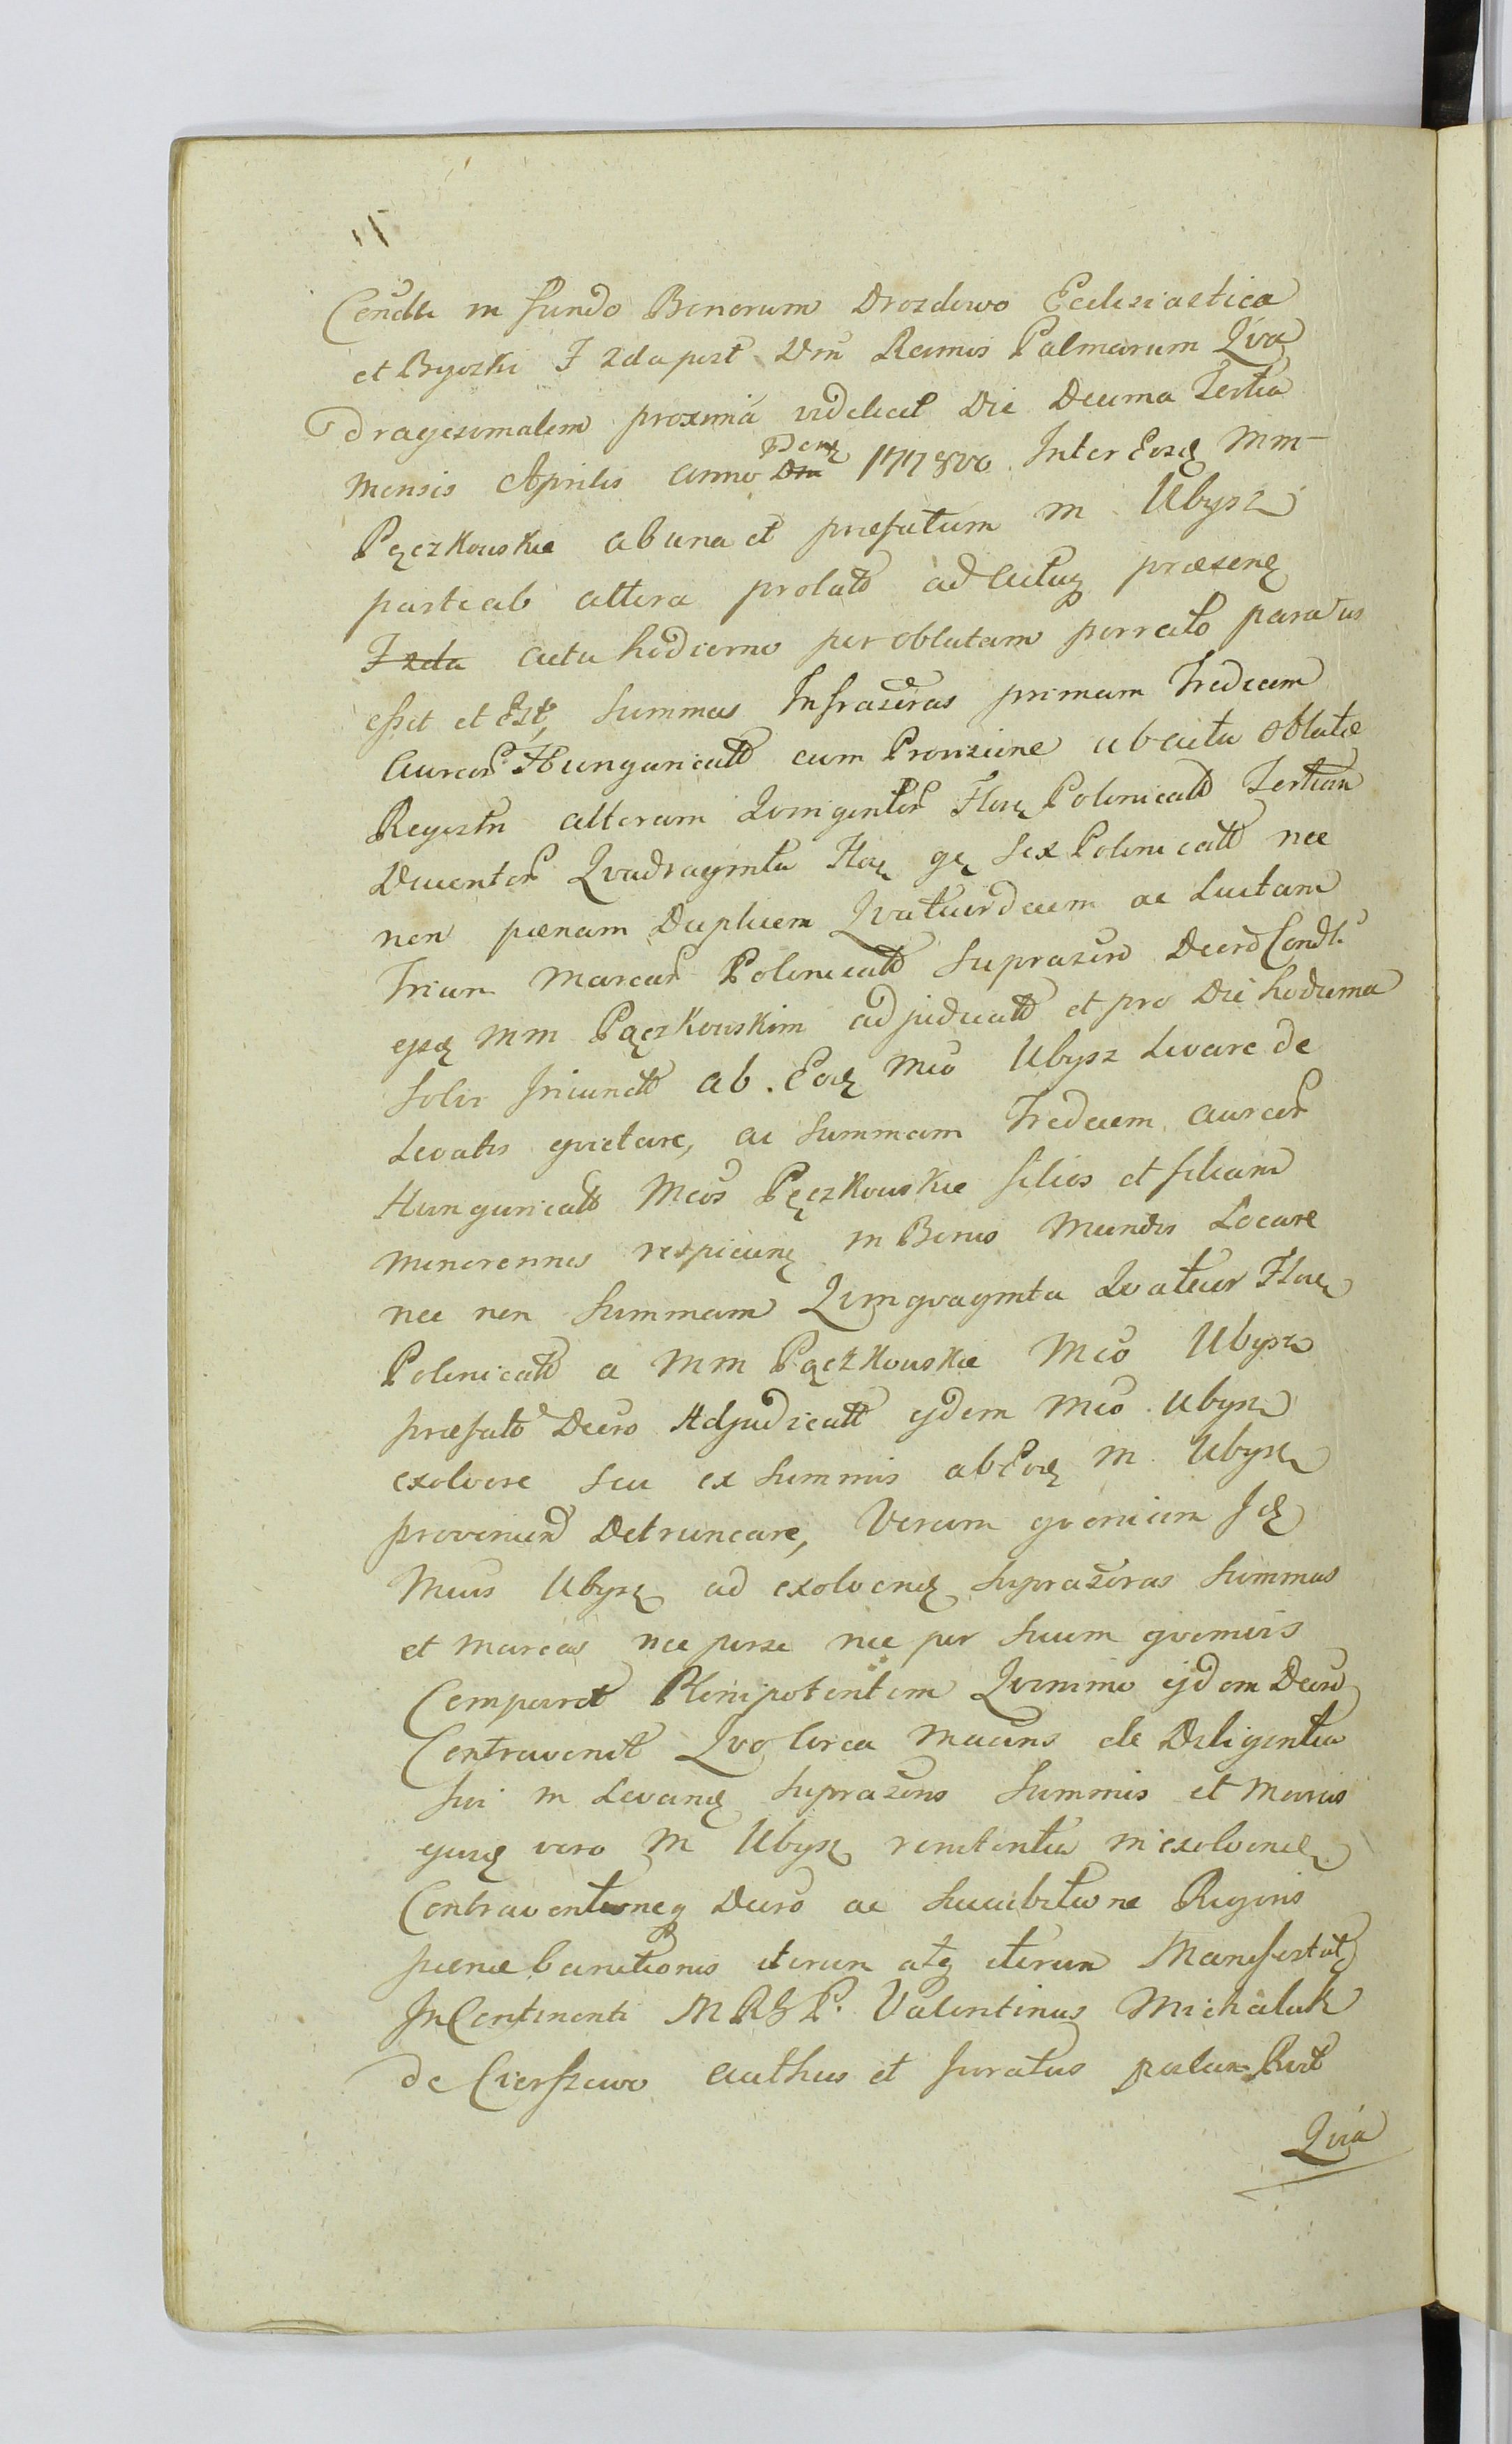 11
Condli in fundo Bonorum Drozdowo Ecclesiastica
et Byszki F 2da post Dm Ramis Palmarum Qva
dragesimalem proximã videlicet Die Decima Tertia
mensis Aprilis anno Dm 177 Inter Eosd Mm
Pęczkowskie ab una et præfatum M Ubysz
parte ab altera prolato ad Actuq præsenq
F 2da actu hodierno per oblatam porrecto paratus
esset et Est, Summas Infrascras primam Tredecem
Aureor Hungaricalt cum Provisione ab actu oblatæ
Registri alteram Qvingentor Flor Polonicalt Tertiam
Ducentor Qvadraginta Flor gr Sex Polonicalt nec
non pænam Duplicem Qvatuordecem ac Luctam
Trium Marcar Polonicalt Suprascro Decro Condli
ejsd Mm Pączkowskim adjudicatt et pro Die hodierna
Solvi Injunctt ab Eod Mco Ubysz Levare de
Levatis qvietare, ac Summam Tredecem aureor
Hungaricalt Mcos Pęczkowskie filios et filiam
minorennes respicienq in Bonis Mundis Locare
nec non Summam Qvinqvaginta Qvatuor Flor
Polonicalt a Mm Pączkowskie Mco Ubysz
præfato Decro Adjudicatt ejdem Mco Ubysz
exolvere seu ex Summis ab Eod M Ubysz
provenien Detruncare, Verum qvoniam Id
Mcus Ubysz ad exolvend Suprascras Summas
et Marcas nec per se nec per Suum qvomvis
Comparet Plenipotentem Qvinimo ejdem Decro
Contravenit Qvo Circa Macins de Diligentia
Sui in Levand Suprascris Summis et Marcis
ejusd vero M Ubysz renitentia in exolvend
Contraventioneq Decro ac Succubitione Rigoris
pænæ banitionis iterum atq iterum Manifestat
In Continenti M R G P. Valentinus Michalak
de Cierszewo authus et Juratus palam
Qvia